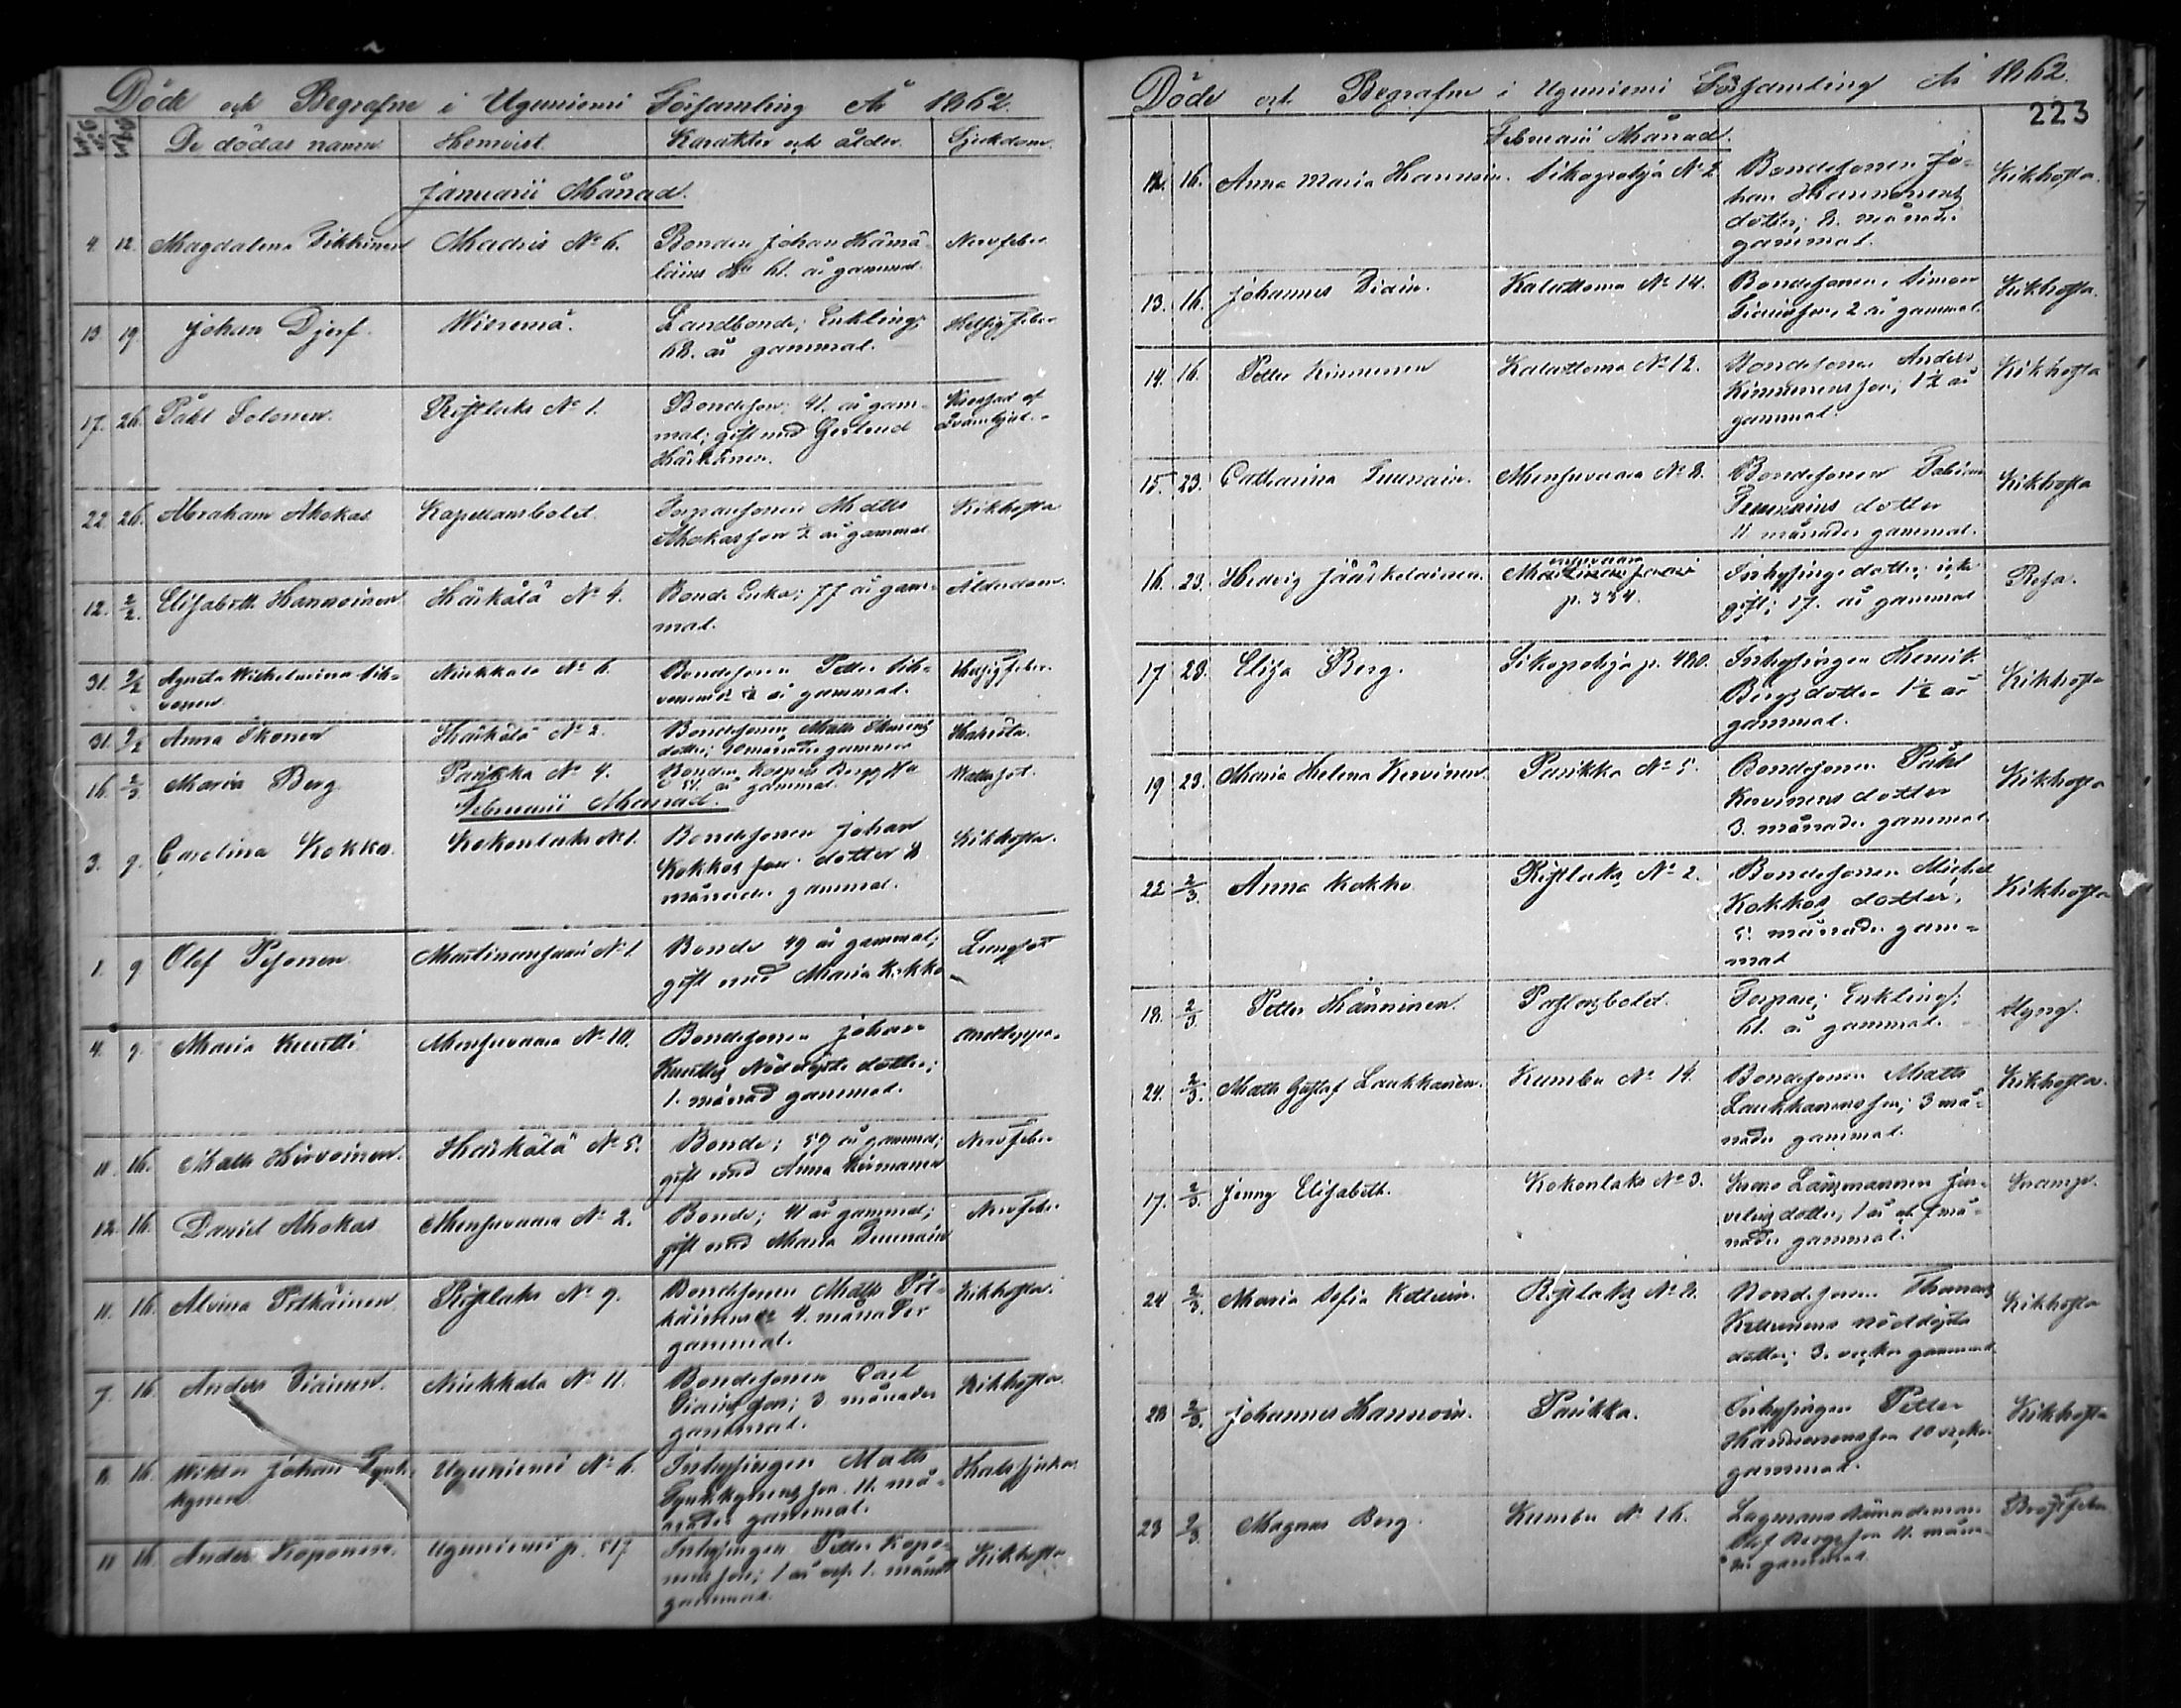 Döde och Begrafne i Uguniemi Församling År 1862.
De dödas namn Hemvist. Karakter och ålder. Sjukdom.
Januarii Månad.
4. 12. Magdalena Tikkinen Madris No 6. Bonden Johan Hämä- Nervfeber
läins Hu 61. år gammal.
13. 19. Johan Djerf. Wieremä. Landbonde; Enkling; Hetsig feber
68. år gammal.
17. 26. Påhl Solonen. Ristlaks No 1. Bondeson; 41. år gam-
mal; gift med Gertrud
22. 26. Abraham Ahokas Kapellansbolet. Torparsonen Matts Kikhosta
Ahokas son ½ år gammal
12. 2/2. Elisabeth Hannoinen Härkälä No 4. Bonde Enka; 77 år gam- Ålderdom.
mal.
31. 2/2 Agneta Wilhelmina Sih- Niukkala No 6. Bondesonen Petter Sih- Hetsig feber.
vonen år gammal.
31. 2/2 Anna Ikonen Härkälä No 2. Bondesonen Matts Ikonens
dotter; månader gammal
16. 2/3 Maria Berg Parikka No 4. Bonden Kasper Bergs Hu Wattusot.
år gammal.
Februarii Månad.
3. 9. Carolina Kokko. Kokonlaks No 1. Bondesonen Johan Kikhosta.
Kokkos dotter 8
månader gammal.
1. 9 Olof Pesonen Martinansaari No 1 Bonde 49 år gammal; Lungsot
gift med Maria Kokko
4. 9. Maria Kuutti Mensuvaara No 10. Bondesonen Johan Andtäppa.
Kuuttis Nöddöpte dotter;
1. månad gammal.
11. 16. Matts Hirvoinen. Härkälä No 5. Bonde; 59 år gammal; Nervfeber
gift med Anna Hirmanen
12. 16. David Ahokas Mensuvaara No 2. Bonde; 41 år gammal; Nervfeber
gift med Maria Tuunain
11. 16. Alvina Pölkäinen Ristlaks No 9. Bondesonen Matts Pöl- Kikhosta.
4. månader
gammal.
7. 16. Anders Tiainen. Niukkala No 11. Bondesonen Carl Kikhosta.
Tiains son; 3 månader
gammal.
8. 16. Wiktor Johan Tynk- Uguniemi No 6. Inhysingen Matts Halssjuka
kynen Tynkkynens son 11. må-
nader gammal.
11 16. Anders Koponen. Uguniemi p. 517 Inhysingen Petter Kopo- Kikhosta
nens son; 1 år och 1. månad
gammal.
Döde och Begrafne i Uguniemi Församling År 1862.
223
Februarii Månad.
12. 16. Anna Maria Hannoin. Sikopohja No 2 Bondesonen Jo- Kikhosta.
han Hannonens
dotter; 8. månader
gammal.
13. 16. Johannes Tiain. Kalattoma No 14. Bondesonen Simon Kikhosta.
Tiains son, 2 år gammal.
14. 16. Petter Kinnunen Kalattoma No 12. Bondesonen Anders Kikhosta
Kinnunens son; 1½ år
gammal.
15. 23. Catharina Tuunain. Mensuvaara No 8. Bondesonen Fabian Kikhosta
Tuunains dotter
11 månader gammal.
16. 23. Hedvig Jääskelainen. p. 334. Inhysinge dotter; ick Rosa.
gift; 17. år gammal
17 23. Elisa Berg. Sikopohja p. 480. Inhysingen Henrik Kikhosta
Bergs dotter 1½ år
gammal.
19 23. Maria Helena Kervinen Parikka No 5. Bondesonen Påhl Kikhosta
Kervinens dotter
3. månader gammal
22 2/3. Anna Kokko Ristlaks No 2. Bondesonen Michel Kikhosta
Kokkos dotter;
5. månader gam-
mal
18. 2/3 Petter Hänninen. Torpare; Enkling;
61. år gammal.
24. 2/3. Matts Gustaf Laukkanen. Kumbu No 14. Bondesonen Matts Kikhosta.
Laukkanens son; 3 må-
nader gammal.
17. 2/3. Jenny Elisabeth. Kokonlaks No 3. Länsmannen Jär- Kramp.
velins dotter, 1 år och 7 må-
nader gammal.
24 2/3. Maria Sofia Kettunin. Ristlaks No 8. Bondesonen Thomas Kikhosta
Kettunens nöddöpta
dotter; 3. veckor gammal
28 2/3. Johannes Hannoin. Parikka. Inhysingen Petter Kikhosta
Hannonens son 10 veckor
gammal.
23 2/3 Magnus Berg. Kumbu No 16. Bröstfeber
Olof Bergs son 11. måna-
der gammal